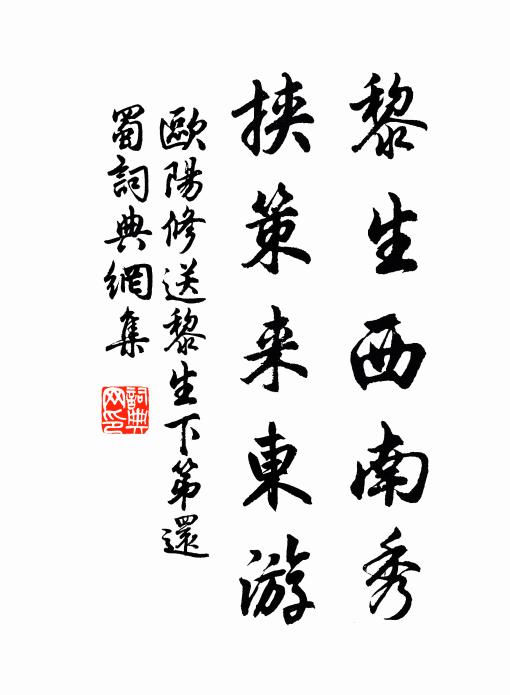 黎生西南秀
挾策来東游
歐陽修送黎生下第還
蜀詞典網集
詞典
网印